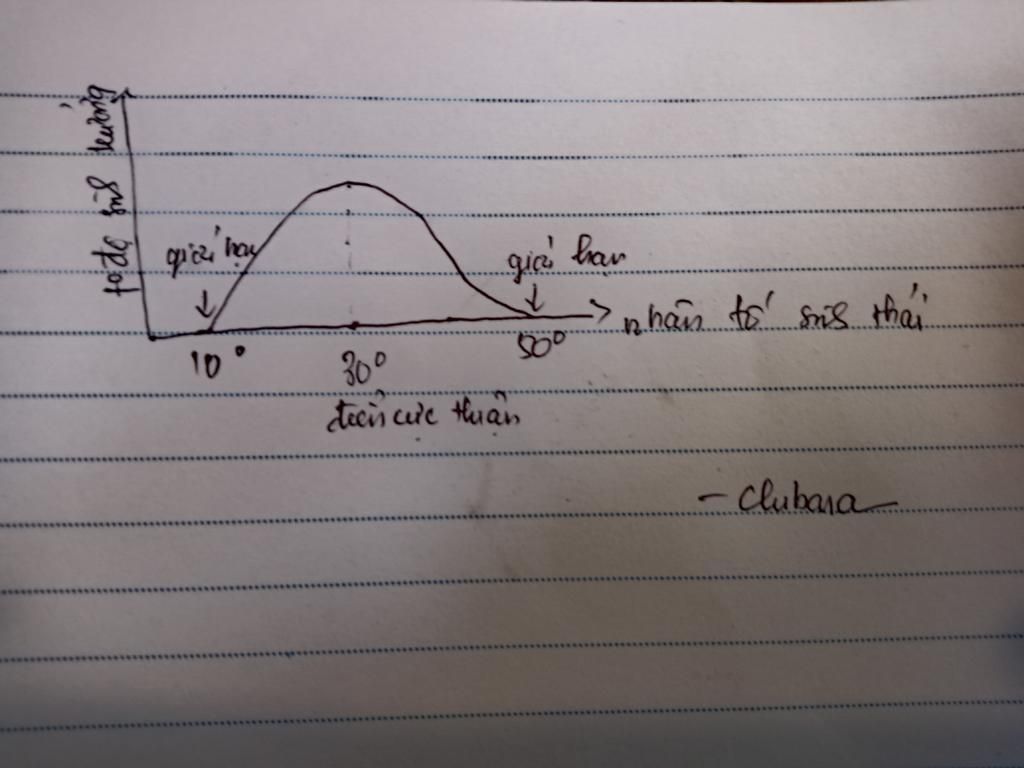 tốc độ sinh trưởng
giới hạn
giới hạn
nhân tố sinh thái
10°
30°
50°
điểm cực thuận
- Clubasa